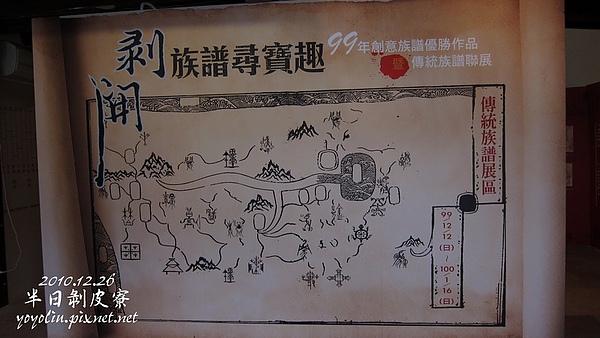 剥開
族譜尋寶趣
99年創意族譜優勝作品
暨
傳統族譜聯展
傳統族譜展區
99
12
12
(日)
/
100
1
16
(日)
2010.12.26
半日剝皮寮
yoyoliu.pixnet.net